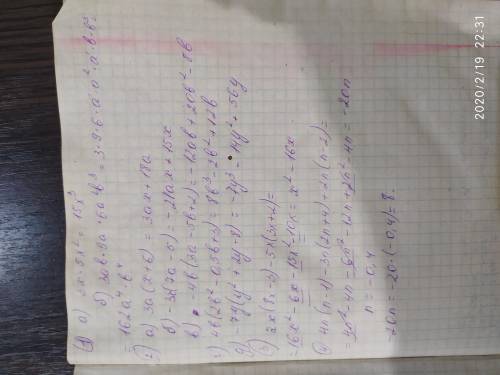 ① а) 3x·5x² = 15x³
б) 3ab·9a·6a²b³ = 3·9·6·a·a²·a·b·b³=
= 162a⁴·b⁴
2) а) 3a(x+6) = 3ax+18a
б) -3x(7a-5) = -21ax+15x
в) -4b(3a-5b+2) = -12ab+20b²-8b
г) 4b(2b²-0,5b+3) = 8b³-2b²+12b
д) -7y(y²+2y-8) = -7y³-14y²+56y
е) 2x(8x-3)-5x(3x+2)=
=16x²-6x-15x²-10x = x²-16x
4n(n-1)-3n(2n+4)+2n(n-2)=
=4n²-4n-6n²-12n+2n²-4n = -20n
n = -0,4
-20n = -20·(-0,4) = 8.
2020/2/19 22:31